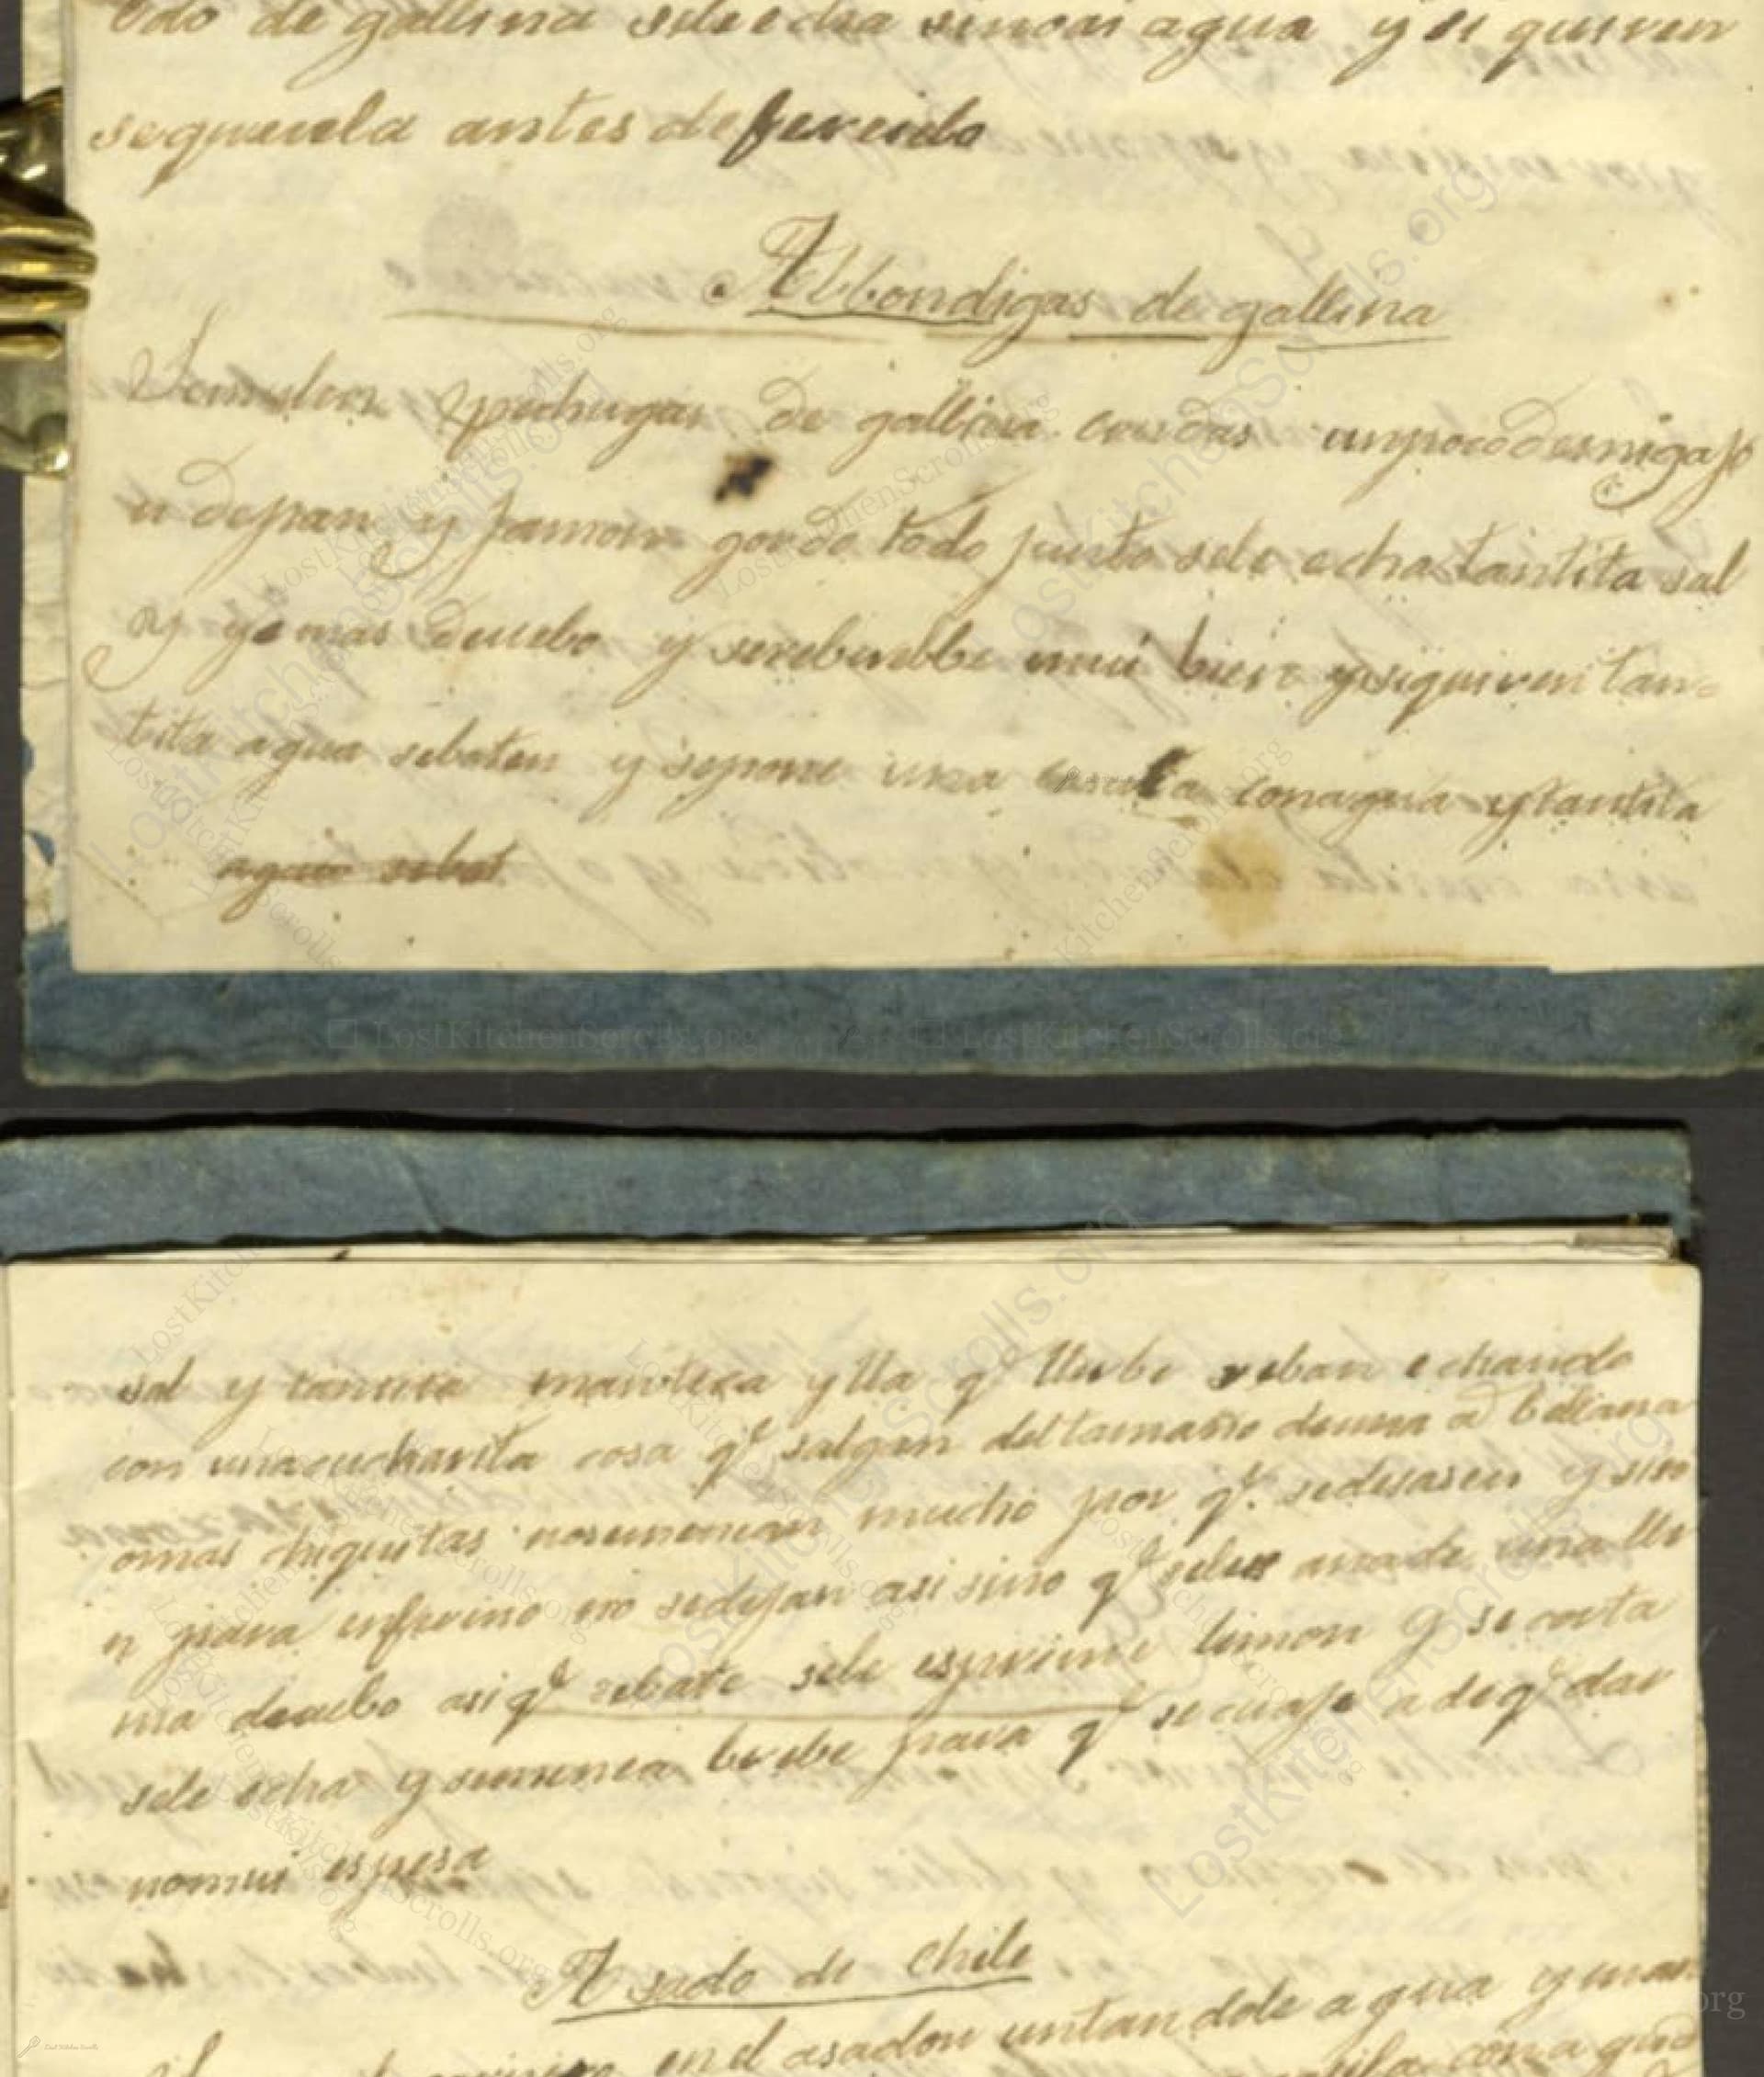 de gallina sele echa sin otra agua y si quieren
seque en la antes de fereirlo
Albondigas de gallina
Se muelen pechugas de gallina crudas un poco de migajo
n de pan y jamon gordo todo junto sele echa tantita sal
y yemas deuebo y serebuelbe mui bien y si quieren tan-
tita agua sebaten y sepone una con agua y tantita
agua sebat
sal y tantita manteca y lla qe llerbe seban echando
con una cucharita cosa qe salgan del tamaño deuna abellana
omas chiquitas nosemenean mucho por qe. sedesasen y sino
n para enfermo no sedejan asi sino qe seles anade una lle
ma deuebo asi qe sebate sele esprime limon y se corta
sele echa y semenea para qe se cuaje a deqe dar
nomui espesa
Asado de chile
en el asador untandole agua y man
con agua